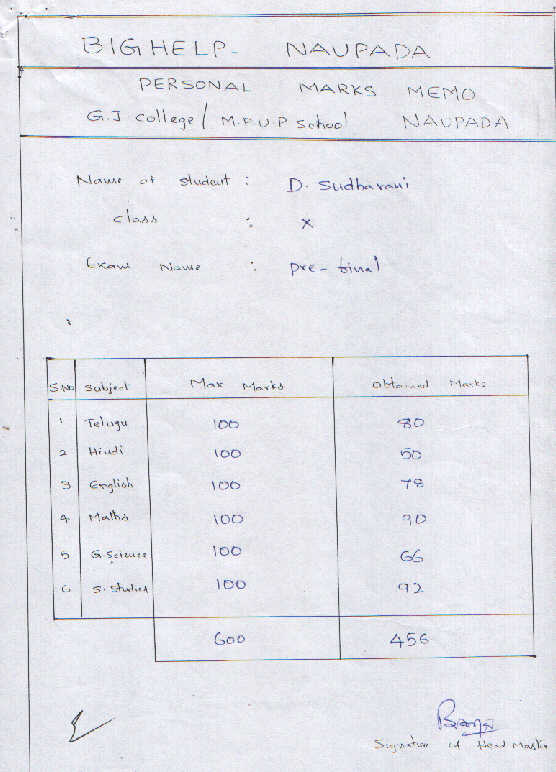 BIGHELP- NAUPADA
PERSONAL MARKS MEMO
G.J college / M.P.U.P school NAUPADA
Name of student : D. Sudharani
class : X
Exam Name : pre-final
S.No Subject Max Marks obtained Marks
1 Telugu 100 80
2 Hindi 100 50
3 English 100 78
4 Maths 100 90
5 G.Science 100 66
6 S.Studies 100 92
600 456
Signature of Head Master